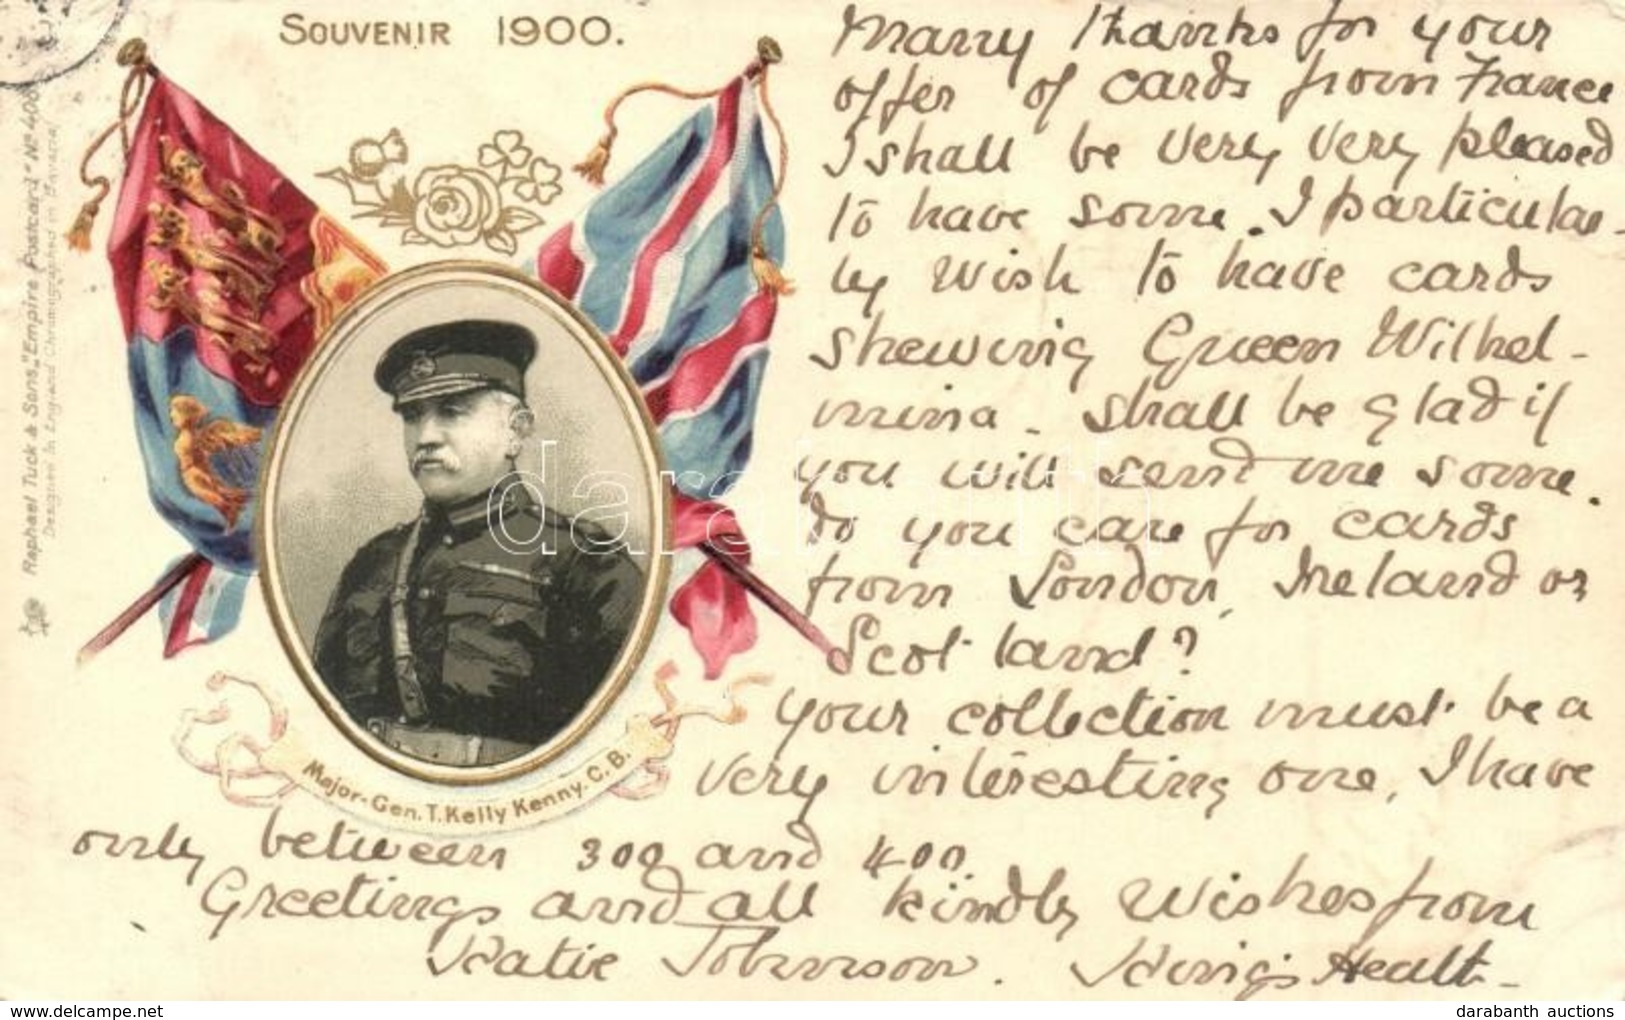 SOUVENIR 1900.
Many thanks for your
offer of cards from France
I shall be very very pleased
to have some. I particular-
ly wish to have cards
shewing Queen Wilhel-
mina - shall be glad if
you will send me some.
do you care for cards
from London, Ireland or
Scotland?
your collection must be a
very interesting one, I have
only between 300 and 400.
Greetings and all kindly wishes from
Katie Johnson. King's Heath-
Major-Gen. T. Kelly Kenny. C. B.
Raphael Tuck & Sons „Empire Postcard" No 408
Designed in England Chromographed in Bavaria
darabanth
delcampe.net
darabanth auctions